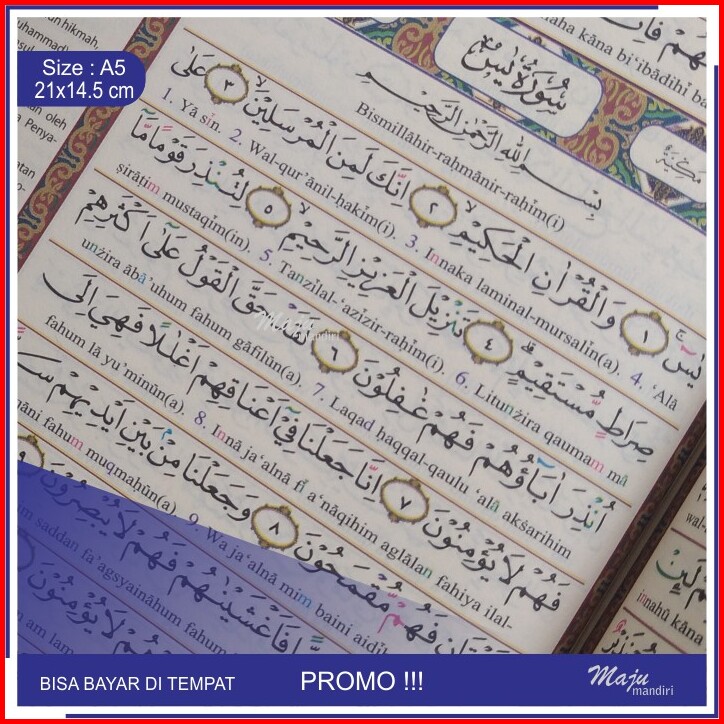 Size : A5
21x14.5 cm
hikmah,
oleh
Penya-
سُوْرَةُ يٰسۤ
مَكِّيَّة
بِسْمِ اللّٰهِ الرَّحْمٰنِ الرَّحِيْمِ
Bismillāhir-raḥmānir-raḥīm(i)
يٰسۤ ۚ ١ وَالْقُرْاٰنِ الْحَكِيْمِۙ ٢ اِنَّكَ لَمِنَ الْمُرْسَلِيْنَۙ ٣ عَلٰى
1. Yā sīn. 2. Wal-qur'ānil-ḥakīm(i). 3. Innaka laminal-mursalīn(a). 4. 'Alā
صِرَاطٍ مُّسْتَقِيْمٍۗ ٤ تَنْزِيْلَ الْعَزِيْزِ الرَّحِيْمِۙ ٥ لِتُنْذِرَ قَوْمًا مَّآ
ṣirāṭim mustaqīm(in). 5. Tanzīlal-'azīzir-raḥīm(i). 6. Litunżira qaumam mā
اُنْذِرَ اٰبَاۤؤُهُمْ فَهُمْ غٰفِلُوْنَ ٦ لَقَدْ حَقَّ الْقَوْلُ عَلٰٓى اَكْثَرِهِمْ
unżira ābā'uhum fahum gāfilūn(a). 7. Laqad ḥaqqal-qaulu 'alā akṡarihim
فَهُمْ لَا يُؤْمِنُوْنَ ٧ اِنَّا جَعَلْنَا فِيْٓ اَعْنَاقِهِمْ اَغْلٰلًا فَهِيَ اِلَى
fahum lā yu'minūn(a). 8. Innā ja'alnā fī a'nāqihim aglālan fahiya ilal-
فَهُمْ مُّقْمَحُوْنَ ٨ وَجَعَلْنَا مِنْۢ بَيْنِ اَيْدِيْهِمْ
fahum muqmaḥūn(a). 9. Wa ja'alnā mim baini
saddan fa'agsyaināhum fahum
فَاَغْشَيْنٰهُمْ فَهُمْ لَا يُبْصِرُوْنَ
am lam
لَا يُؤْمِنُوْنَ
kāna bi'ibādihī
Maju
mandiri
BISA BAYAR DI TEMPAT
PROMO !!!
Maju
mandiri